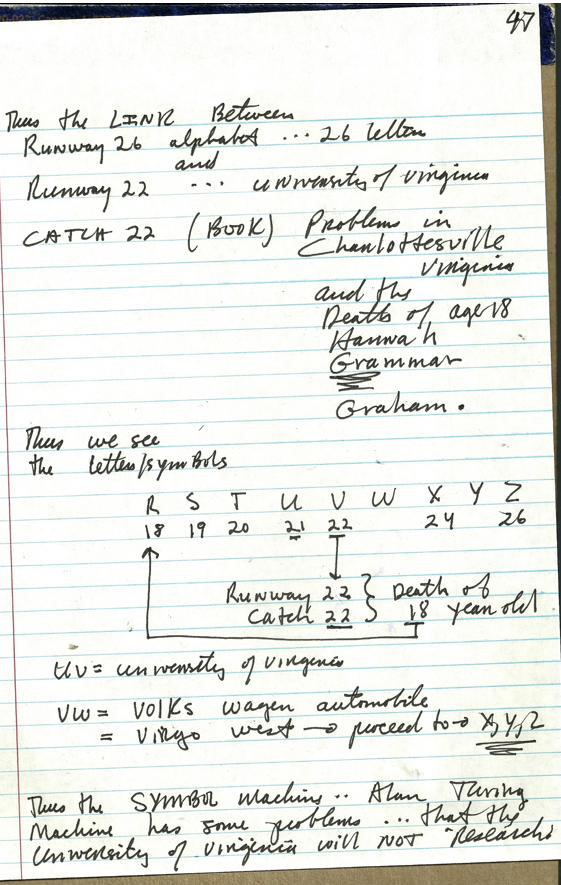 47
Thus the LINK Between
Runway 26 alphabet ... 26 letters
and
Runway 22 ... University of Virginia
CATCH 22 (BOOK) Problems in
Charlottesville
Virginia
and the
Death of age 18
Hannah
Grammar
Graham.
Thus we see
the letters/symbols
R S T U V W X Y Z
18 19 20 21 22 24 26
Runway 22 } Death of
Catch 22 } 18 year old
UV = University of Virginia
VW = Volks wagen automobile
= Virgo west → proceed to → X, Y, Z
Thus the SYMBOL Machine .. Alan Turing
Machine has some problems ... that the
University of Virginia will NOT "Research"